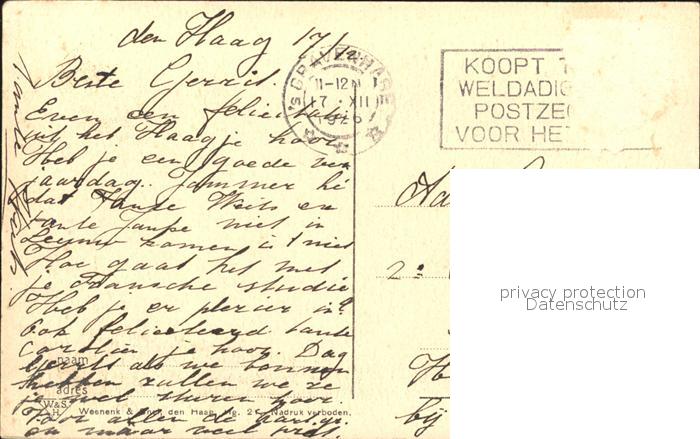 den Haag 17/12
Beste Gerrit.
Even een felicitatie
uit het Haagje hoor.
Heb je een goede ver
jaardag. Jammer hè
dat Tante Weits en
tante Jaape niet in
Leeuw komen is 't niet
Hoe gaat het met
je Fransche studie
Heb je er plezier in?
Ook feliciteerd tante
Carolien je hoor. Dag
Gerrit als we bonnen
hebben zullen we ze
je wel sturen hoor.
Voor allen de
en maar veel pret.
Tante
's GRAVENHAGE
11-12
17 XII
192
KOOPT
WELDADIG
POSTZE
VOOR HET
Aa
2e
H
bij
naam
adres
W&S
H
Weenenk & Snel, den Haag. Mg. 2 Nadruk verboden.
privacy protection
Datenschutz